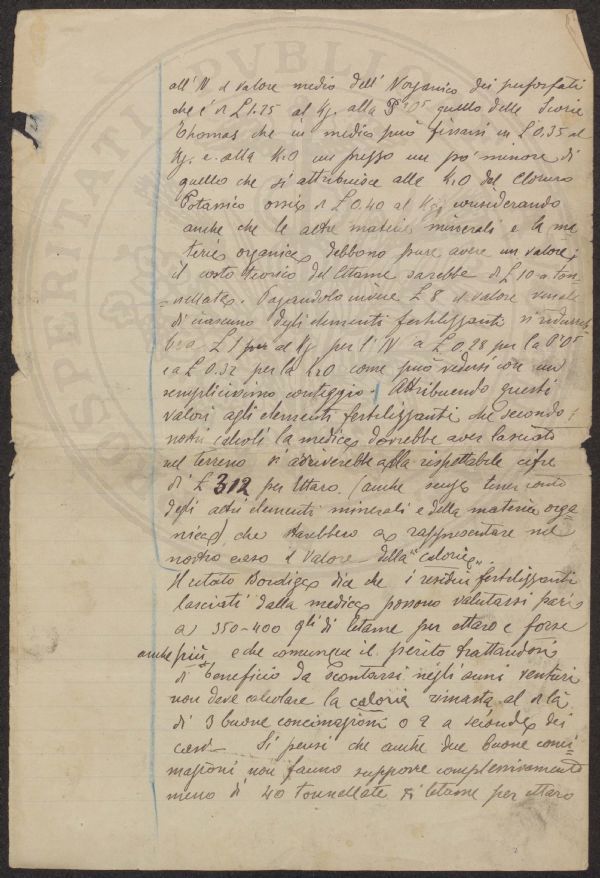 all'N il valore medio dell'N organico dei perfosfati
che è di L 1.25 al Kg. alla P²O⁵ quello delle Scorie
Thomas che in media può fissarsi in L 0.35 al
Kg. e alla K₂O un prezzo un po' minore di
quello che si attribuisce alla K₂O del Cloruro
Potassico ossia di L 0.40 al Kg; considerando
anche che le altre materie minerali e la ma
teria organica debbono pure avere un valore;
il costo teorico del letame sarebbe di L 10 a ton=
=nellata. Pagandolo invece L 8 il valore venale
di ciascuno degli elementi fertilizzanti si ridurreb
be a L 1 al Kg per l'N a L 0.28 per la P²O⁵
e a L 0.32 per la K₂O come può vedersi con un
semplicissimo conteggio. Attribuendo questi
valori agli elementi fertilizzanti che secondo i
nostri calcoli la medica dovrebbe aver lasciato
nel terreno si arriverebbe alla rispettabile cifra
di L 312 per Ettaro (anche senza tener conto
degli altri elementi minerali e della materia orga=
nica) che starebbero a rappresentare nel
nostro caso il valore della "caloria".
Il citato Bordiga dice che i residui fertilizzanti
lasciati dalla medica possono valutarsi pari
a 350-400 q.li di letame per ettaro e forse
anche più e che comunque il perito trattandosi
di beneficio da scontarsi negli anni venturi
non deve calcolare la caloria rimasta al di là
di 3 buone concimazioni o 2 a seconda dei
casi. Si pensi che anche due buone conci=
mazioni non fanno supporre complessivamente
meno di 40 tonnellate di letame per ettaro
PROSPERITATI PVBLI